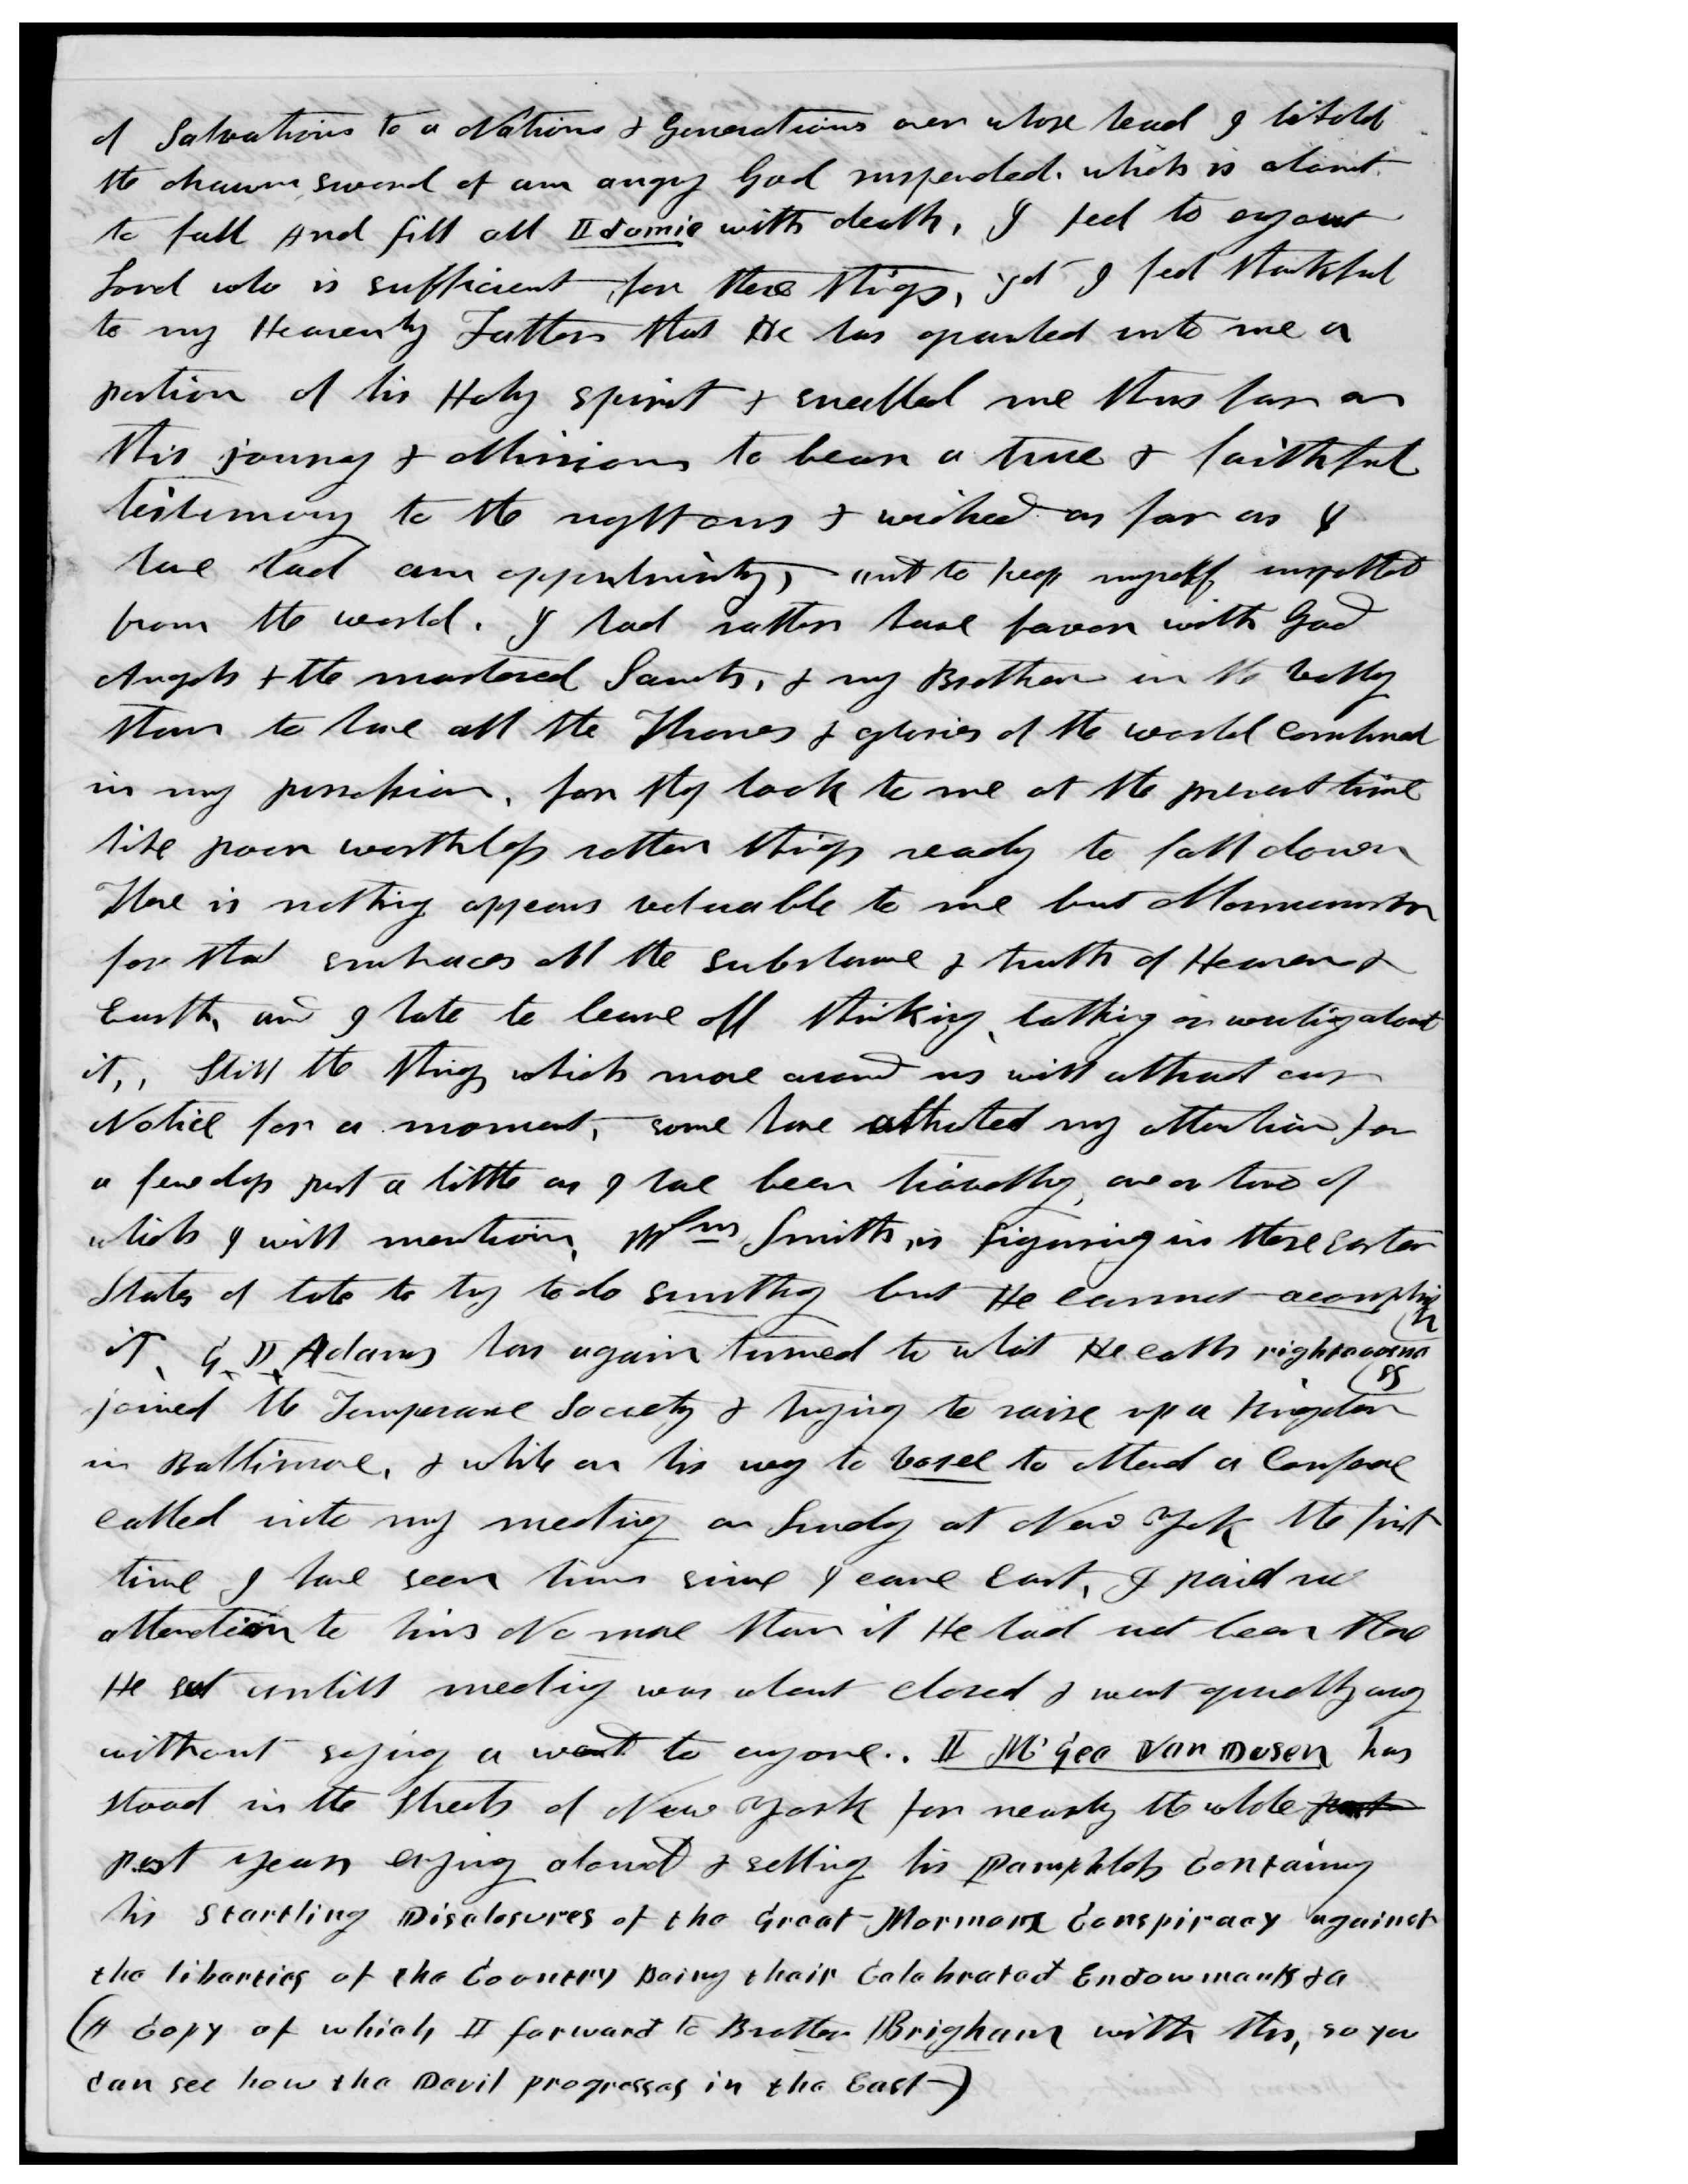 of Salvation to a Nation & Generation over whose head I behold
the drawn sword of an angry God suspended. which is about
to fall And fill all Idomie with death, I feel to cry out
Lord who is sufficient for these things, yet I feel thankful
to my Heavenly Father that He has granted unto me a
portion of his Holy spirit & enabled me thus far on
this journy & Mission to bear a true & faithful
testimony to the righteous & wicked as far as I
have had an oppertunity, and to keep myself unspotted
from the world. I had rather have favor with God
Angels & the martered Saints, & my Brethren in the Valley
than to have all the Thrones & glories of the world combined
in my possession, for they look to me at the present time
like poor worthless rotten things ready to fall down
There is nothing appears valuable to me but Mormonism
for that embraces all the substance & truth of Heaven &
Earth, and I hate to leave off thinking, talking or writing about
it,, Still the things which move around us will attract our
Notice for a moment, some have attracted my attention for
a few days past a little as I have been travelling, one or two of
which I will mention, Wm Smith, is figuring in these Eastern
States of late to try to do sumthig but He cannot acomplish
it, G. D. Adams has again turned to what He calls righteousness
joined the Temperance Society & trying to raise up a kingdom
in Baltimore, & while on his way to Vosee to attend a Conference
called into my meeting on Sunday at New York the first
time I have seen him since I came East, I paid no
attention to him No more than if He had not been there
He sat untill meeting was about closed & went quietly away
without saying a word to anyone.. I McGee Van Dusen has
stood in the Streets of New York for nearly the whole past
past year crying aloud & selling his Pamphlets Containing
his Startling Disclosures of the Great Mormon Conspiracy against
the liberties of the Country Being their Celebrated Endowments &c
(A Copy of which I forward to Brother Brigham with this, so you
can see how the Devil progresses in the East)